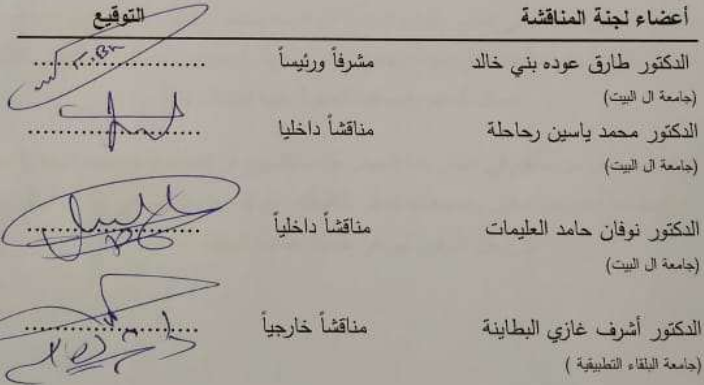 أعضاء لجنة المناقشة التوقيع
الدكتور طارق عوده بني خالد مشرفاً ورئيساً ....................
(جامعة ال البيت)
الدكتور محمد ياسين رحاحلة مناقشاً داخليا ....................
(جامعة ال البيت)
الدكتور نوفان حامد العليمات مناقشاً داخلياً ....................
(جامعة ال البيت)
الدكتور أشرف غازي البطاينة مناقشاً خارجياً ....................
(جامعة البلقاء التطبيقية )